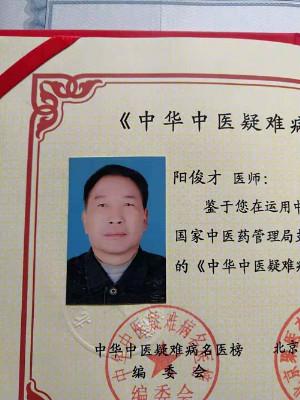 《中华中医疑难病
阳俊才 医师：
鉴于您在运用中
国家中医药管理局
的《中华中医疑难病
中华中医疑难病名医榜
中华中医疑难病名医榜
北京
编委会
编委会